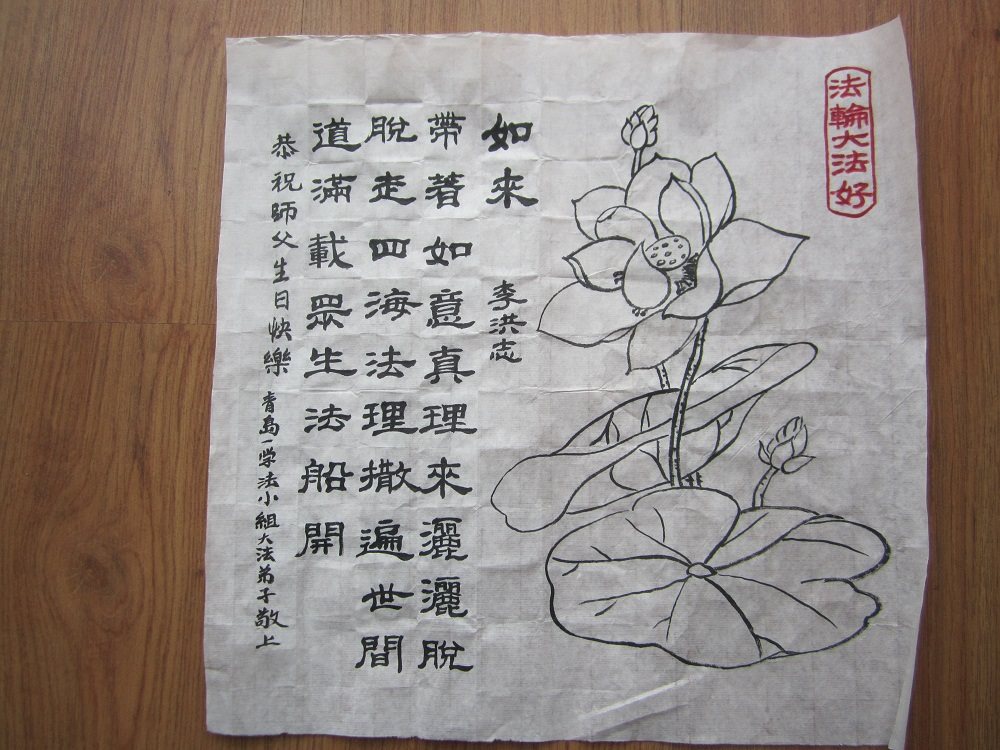 法輪大法好
如來
李洪志
帶著如意真理來灑灑脫
脫走四海法理撒遍世間
道滿載眾生法船開
恭祝師父生日快樂
青島一学法小組大法弟子敬上